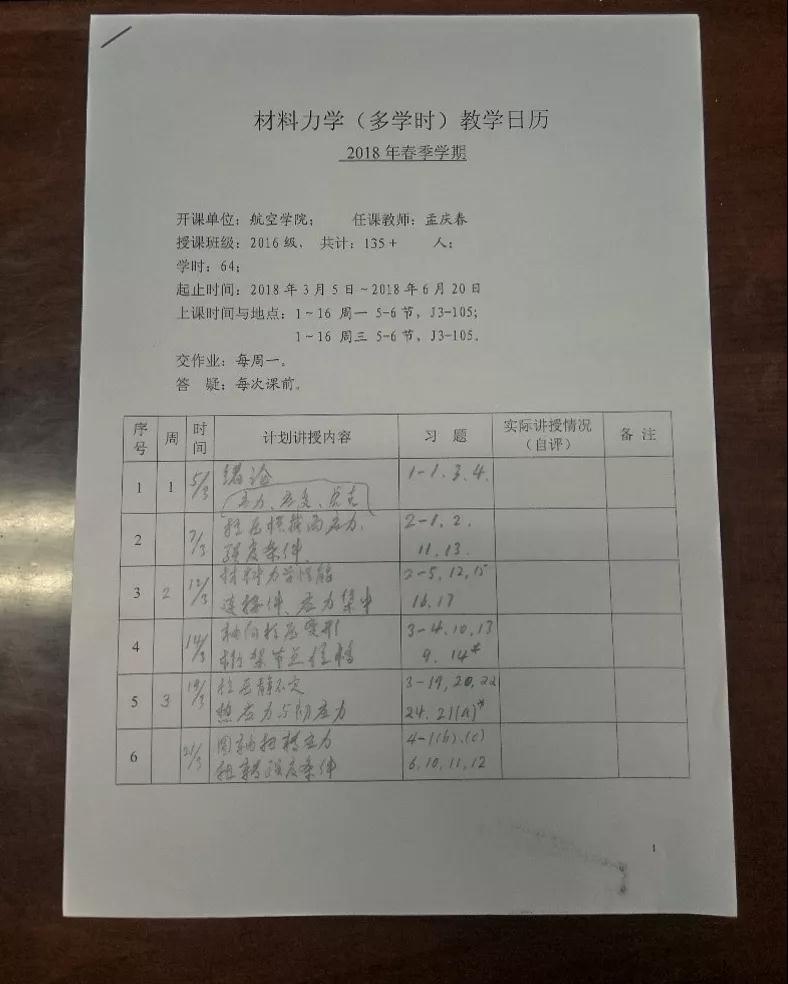 材料力学（多学时）教学日历
2018 年春季学期
开课单位：航空学院； 任课教师：孟庆春
授课班级：2016 级， 共计：135+ 人；
学时：64；
起止时间：2018 年 3 月 5 日～2018 年 6 月 20 日
上课时间与地点：1～16 周一 5-6 节，J3-105；
1～16 周三 5-6 节，J3-105。
交作业：每周一。
答 疑：每次课前。
序号 周 时间 计划讲授内容 习 题 实际讲授情况（自评） 备 注
1 1 5/3 绪论 1-1. 3. 4.
应力、应变、
2 7/3 拉压横截面应力. 2-1. 2.
强度条件. 11. 13.
3 2 12/3 材料力学性能 2-5, 12, 15
连接件、应力集中 16. 17
4 14/3 轴向拉压变形 3-4. 10. 13
桁架节点位移 9. 14*
5 3 19/3 拉压静不定 3-19, 20, 22
热应力与初应力 24. 21(a)*
6 21/3 圆轴扭转应力 4-1(b).(c)
扭转强度条件 6, 10, 11, 12
1